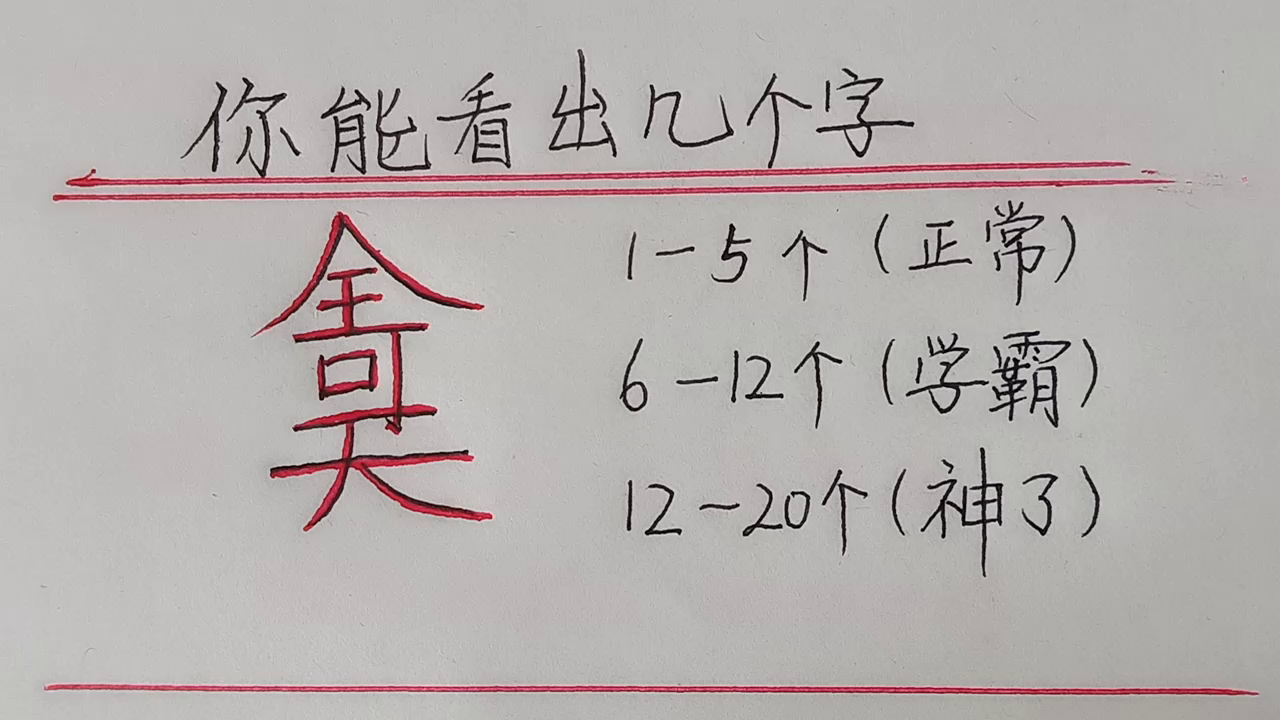 你能看出几个字
1-5个(正常)
6-12个(学霸)
12-20个(神了)